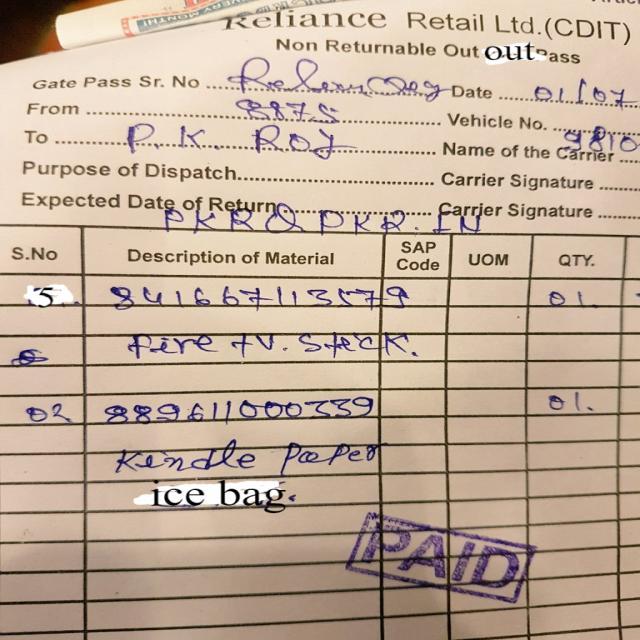 Reliance Retail Ltd.(CDIT)
Non Returnable Out out Pass
Gate Pass Sr. No ............ Date ...... 01/07
From ...... 8875 ...... Vehicle No. ...
To ...... P.K. ROY ...... Name of the Carrier 9810
Purpose of Dispatch........................ Carrier Signature ....
Expected Date of Return ........ Carrier Signature ......
PKR@PKR.IN
S.No Description of Material SAP Code UOM QTY.
5. 841667113579 01.
fire tv. Steck.
02 889611000339 01.
Kendle Paper
ice bag.
PAID